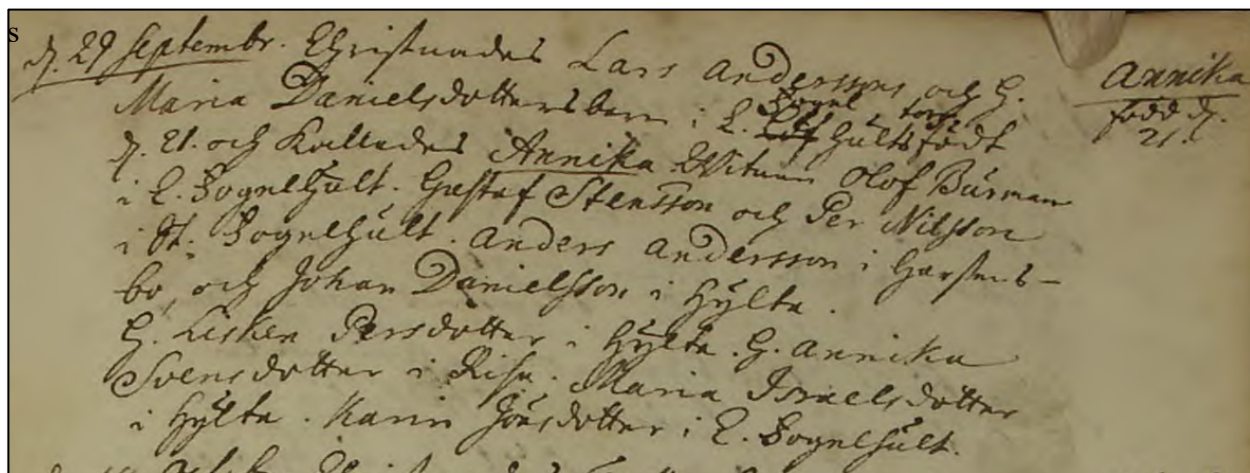 s
d. 29 Septembr. Christnades Lars Anderssons och H.
Maria Danielsdottersbarn i L. Fogel torp Hults födt
d. 21. och Kallades Annika. Witnen Olof Burman
i L. Fogelhult. Gustaf Stensson och Per Nilsson
i St. Fogelhult. Anders Andersson i Garstens-
bo, och Johan Danielsson i Hylta.
H. Lisken Persdotter i Hylta. H. Annika
Svensdotter i Risa. Maria Israelsdotter
i Hylta. Karin Jönsdotter i L. Fogelhult.
Annika
född d.
21.